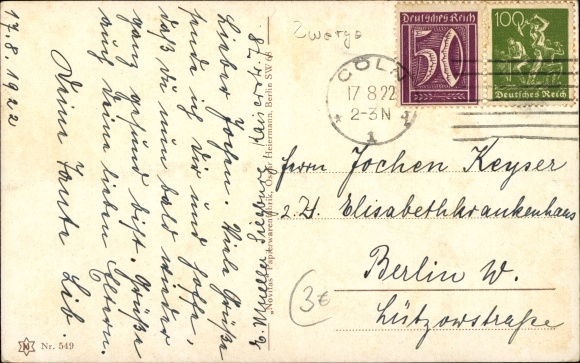 17.8.1922
Lieber Jochen. Viele Grüße
sende ich Dir und hoffe,
daß du nun bald wieder
ganz gesund bist. Grüße
auch Deine lieben Eltern.
Deine Tante Lib.
E Mueller Siegburg Kaiserstr. 87
Nr. 549
„Novitas" Papierwarenfabrik, Oskar Heiermann, Berlin SW 68
Zwerge
Deutsches Reich
50
100
Deutsches Reich
CÖLN
17.8.22
2-3N
* 1
Herrn Jochen Keyser
z. Zt. Elisabethkrankenhaus
Berlin W.
Lützowstraße
3€